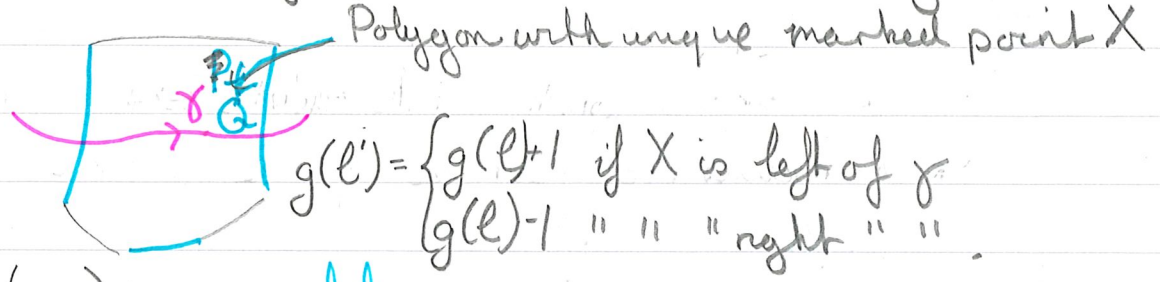 Polygon with unique marked point X
P
γ Q
g(ℓ') = { g(ℓ)+1 if X is left of γ
g(ℓ)-1 " " " right " " .